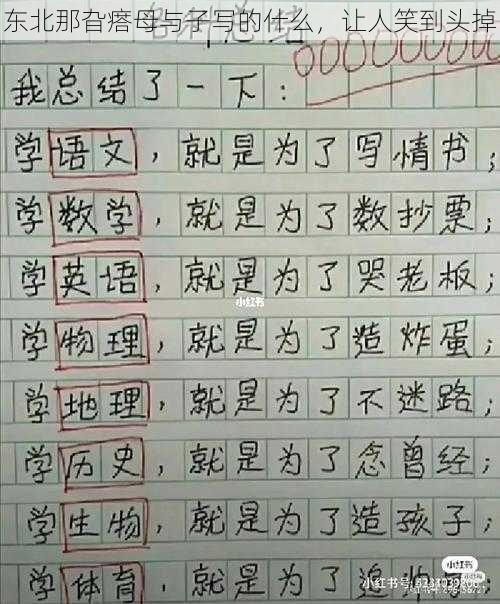 东北那旮瘩母与子写的什么，让人笑到头掉
总结
我总结了一下：
学语文，就是为了写情书；
学数学，就是为了数抄票；
学英语，就是为了哭老板；
小红书
学物理，就是为了造炸蛋；
学地理，就是为了不迷路；
学历史，就是为了念曾经；
学生物，就是为了造孩子；
小红书
学体育，就是为了追
小红书号: